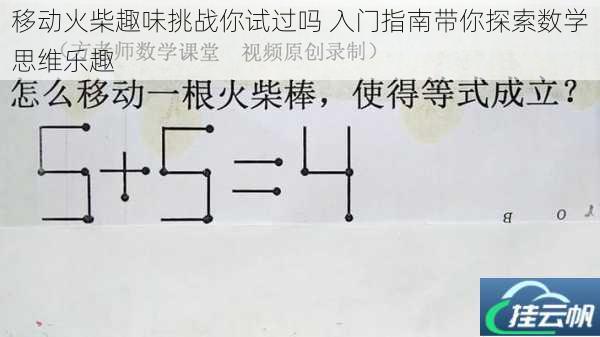 移动火柴趣味挑战你试过吗 入门指南带你探索数学
思维乐趣
（方老师数学课堂 视频原创录制）
怎么移动一根火柴棒，使得等式成立？
5+5=4
B O
挂云帆